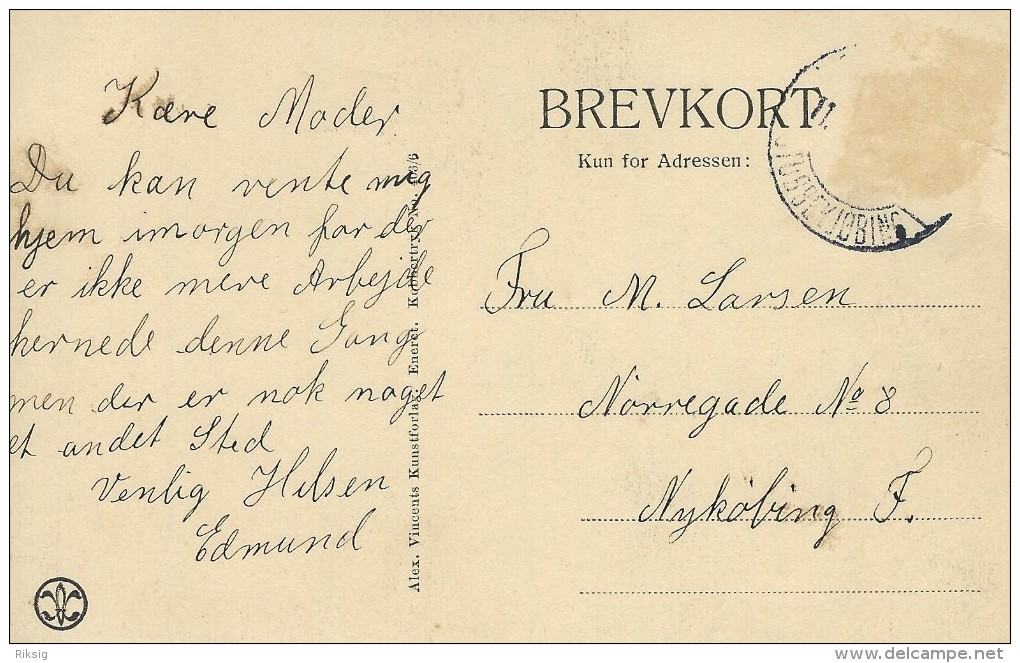 Kære Moder
Du kan vente mig
hjem imorgen for der
er ikke mere Arbejde
hernede denne Gang
men der er nok noget
et andet Sted
Venlig Hilsen
Edmund
Alex. Vincents Kunstforlag. Eneret. Kobbertryk No. 106/6
BREVKORT
Kun for Adressen:
11.
STUBBEKJØBING
Fru M. Larsen
Nörregade No 8
Nyköbing F.
Riksig
www.delcampe.net